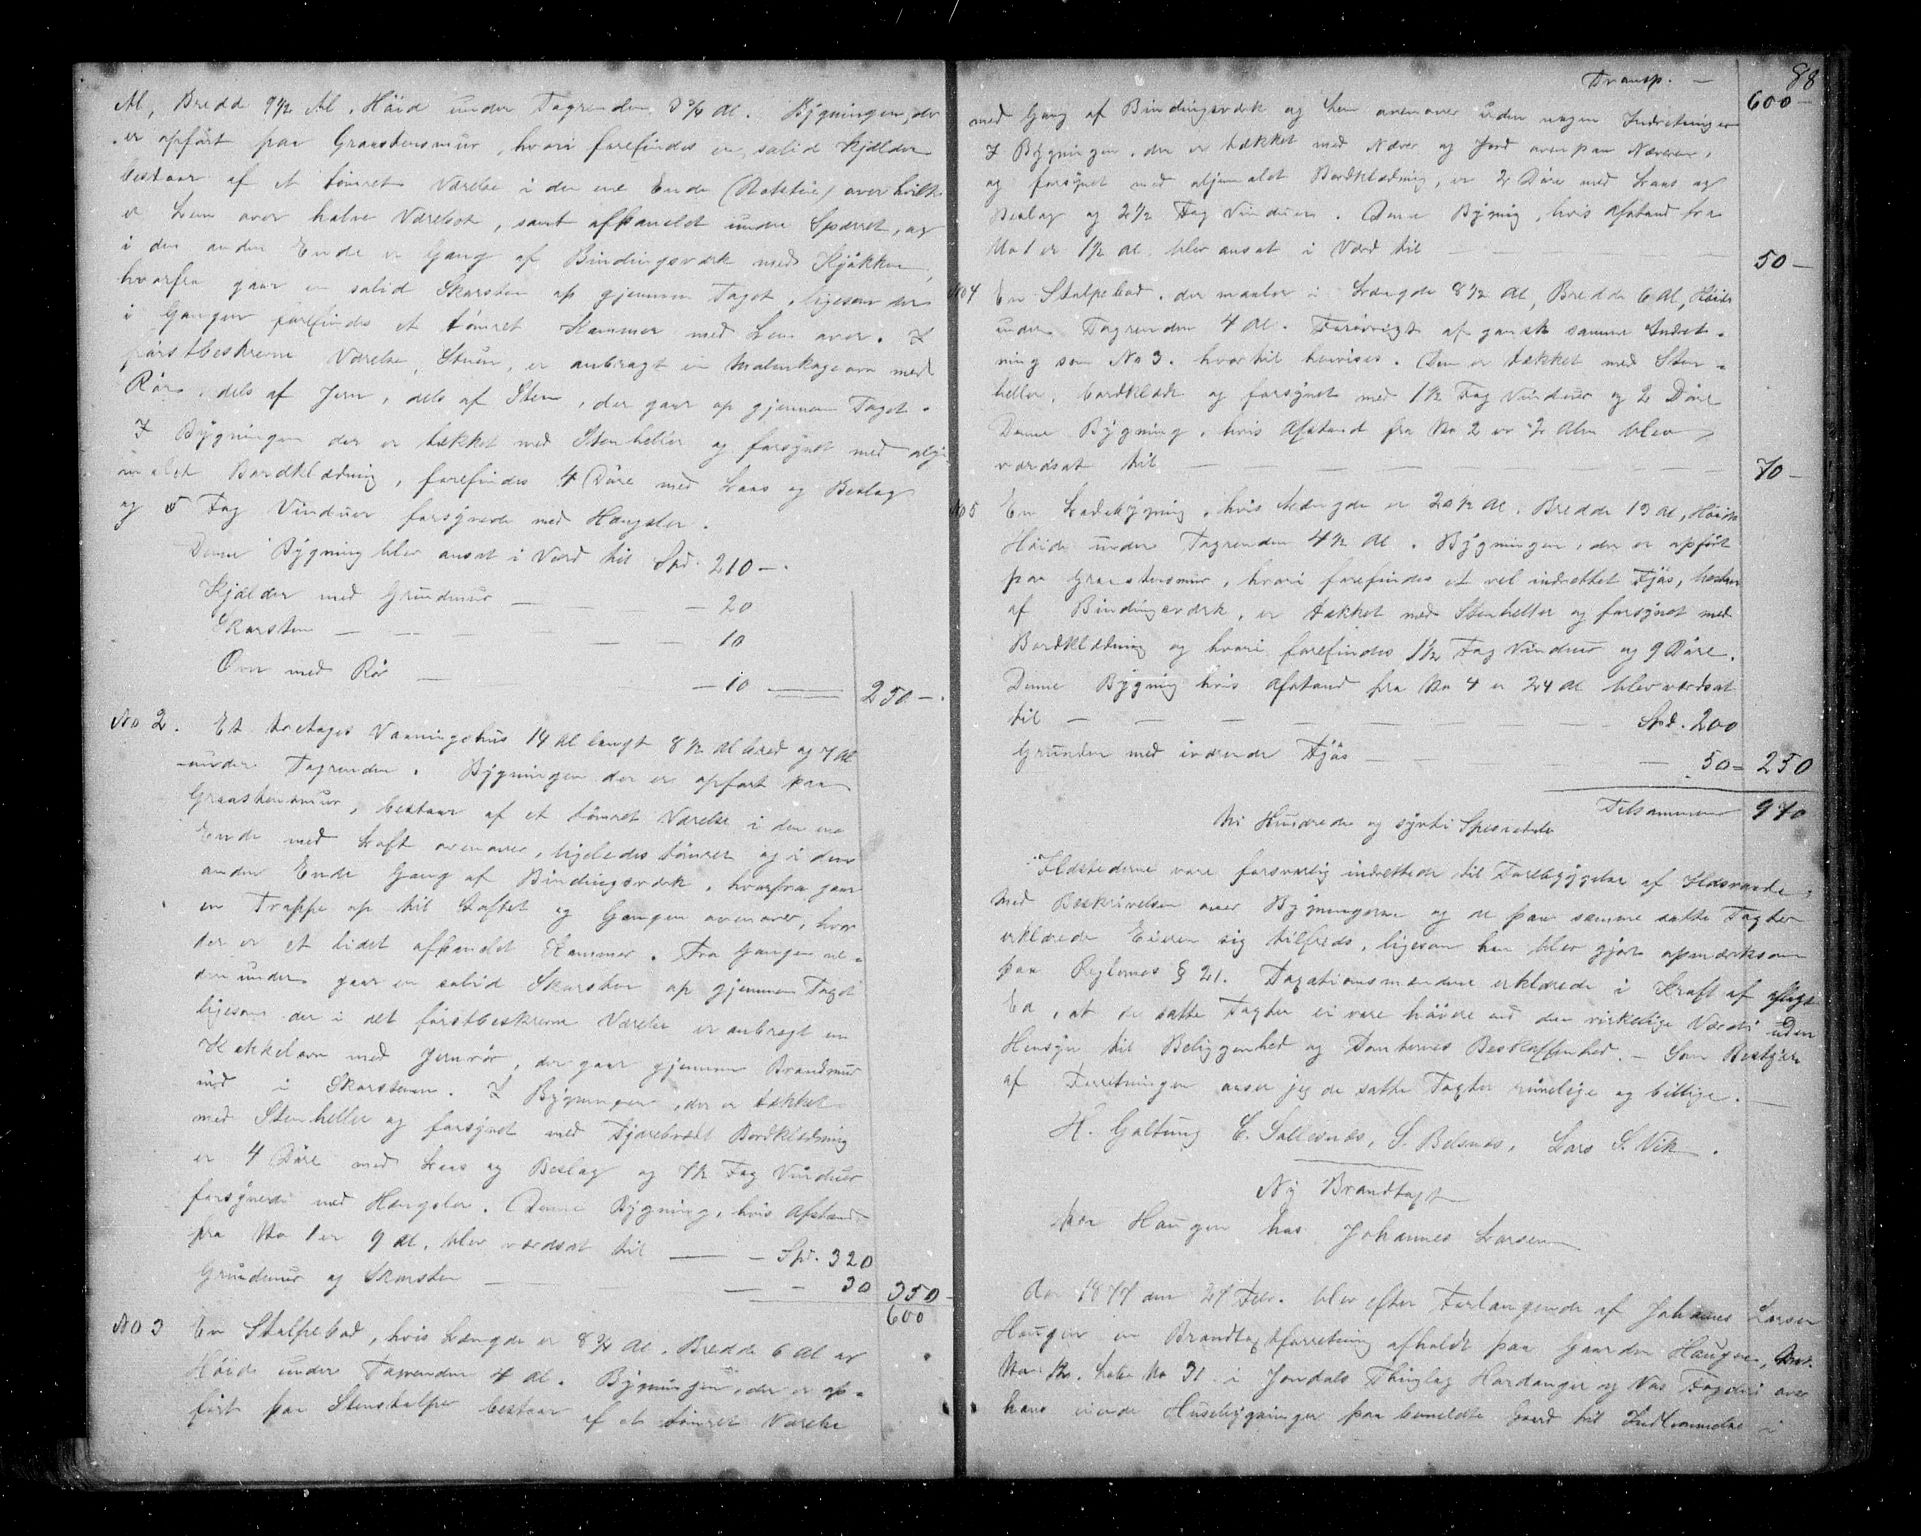 Al, Bredd 9½ Al. Höid under Tagrenden 3¾ Al. Bygningen, der
er opfört paa Graastensmur, hvori forefindes en solid Kjælder
bestaar af et tömret Værelse i den ene Ende (Røkstue) over hvilke
er Lem over halve Værelset, samt afpanelet under Sperret, og
i den anden Ende er Gang af Bindingsværk med Kjökken,
hvorfra gaar en solid Skorsten op gjennem Taget, ligesom der
i Gangen forefindes et tömret Kammer med Lem over. I
förstbeskrevne Værelse, Stuen, er anbragt en Madkogeovn med
Rör, dels af Jern, dels af Sten, der gaar op gjennem Taget.
I Bygningen der er tækket med Stenheller og forsynet med olje-
malet Bordklædning, forefindes 4 Döre med Laas og Beslag
og 5 Fag Vinduer forsynede med Hængsler.
Denne Bygning blev ansat i Værd til Spd. 210 —
Kjælder med Grundmur — — 20
Skorsten — — — 10
Ovn med Rör — — 10 — 250 —
No 2. Et toetages Vaaningshus 14 Al langt 8½ Al bred og 7 Al
under Tagrenden. Bygningen der er opfört paa
Graastensmur, bestaar af et tömret Værelse i den ene
Ende med Loft ovenover, ligeledes tömret og i den
anden Ende Gang af Bindingsværk, hvorfra gaar
en Trappe op til Loftet og Gangen ovenover, hvor
der er et lidet afpanelet Kammer. Fra Gangen ne-
denunder gaar en solid Skorsten op gjennem Taget
ligesom der i det förstbeskrevne Værelse er anbragt en
Kakkelovn med Jernrör, der gaar gjennem Brandmur
ind i Skorstenen. I Bygningen, der er tækket
med Stenheller og forsynet med Tjærebredt Bordklædning
er 4 Döre med Laas og Beslag og Fag Vinduer
forsynede med Hængsler. Denne Bygning, hvis Afstand
fra No 1 er 9 Al, blev værdsat til — — Spd. 320
Grundmur og Skorsten — — — 30 350 —
600
No 3 En Stolpebod, hvis Længde er 8¾ Al. Bredde 6 Al og
Höide under Tagrenden 4 Al. Bygningen, der er op-
fört paa Stenstolper bestaar af et tömret Værelse
88
Transp. — 600 —
med Gang af Bindingsværk og Lem ovenover uden nogen Indretninger
I Bygningen, der er tækket med Næver og Jord ovenpaa Næveren,
og forsynet med oljemalet Bordklædning, er 2 Döre med Laas og
Beslag og 2½ Fag Vinduer. Denne Bygning, hvis Afstand fra
No 1 er 1½ Al blev ansat i Værd til — — — 50 —
No 4 En Stolpebod, der maaler i Længde 8½ Al, Bredde 6 Al, Höide
under Tagrenden 4 Al. Forövrigt af gansk samme Indret-
ning som No 3. hvortil henvises. Den er tækket med Sten-
heller, bordklædt og forsynet med 1½ Fag Vinduer og 2 Döre
Denne Bygning, hvis Afstand fra No 2 er 2 Alen blev
værdsat til — — — — — 70 —
No 5 En Ladebygning, hvis Længde er 20½ Al. Bredde 13 Al, Höide
Höide under Tagrenden 4½ Al. Bygningen, der er opfört
paa Graastensmur, hvori forefindes et vel indrettet Fjös,
af Bindingsværk, er tækket med Stenheller og forsynet med
Bordklædning og hvori forefindes 1½ Fag Vinduer og 9 Döre.
Denne Bygning hvis Afstand fra No 4 er 24 Al blev værdsat
til — — — — — Spd. 200
Grunden med iværende Fjös — — — 50 = 250
Tilsammen 970
Ni Hundrede og sÿvti Speciedaler
Ildstederne vare forsvarlig indrettede til Forebyggelse af Ildsvaade,
Med Beskrivelsen over Bygningerne og de paa samme satte Taxter
erklærede Eieren sig tilfreds, ligesom han blev gjort opmærksom
paa Reglernes § 21. Taxationsmændene erklærede i Kraft af aflagt
Ed, at de satte Taxter ei vare höiere end den virkelige Værdi uden
Hensyn til Beliggenhed og Tomternes Beskaffenhed. — Som Bestyrer
af Forretningen anser jeg de satte Taxter rimelige og billige. —
H. Galtung C. Sollesnæs, S. Belsnæs, Lars S. Vik.
Ny Brandtaxt
paa Haugen hos Johannes Larsen
Aar 1877 den 27 Febr. blev efter Forlangende af Johannes Larsen
Haugen en Brandtaxtforretning afholdt paa Gaarden Haugen, Mat.
No Löbe No 31 i Jondals Thinglag Hardanger og Vos Fogderi over
hans eiende Husebygninger paa bemeldte Gaard til Indlemmelse i